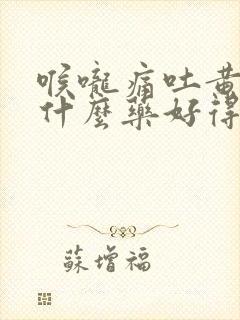 喉嚨痛吐黃
什麼藥好得
蘇增福